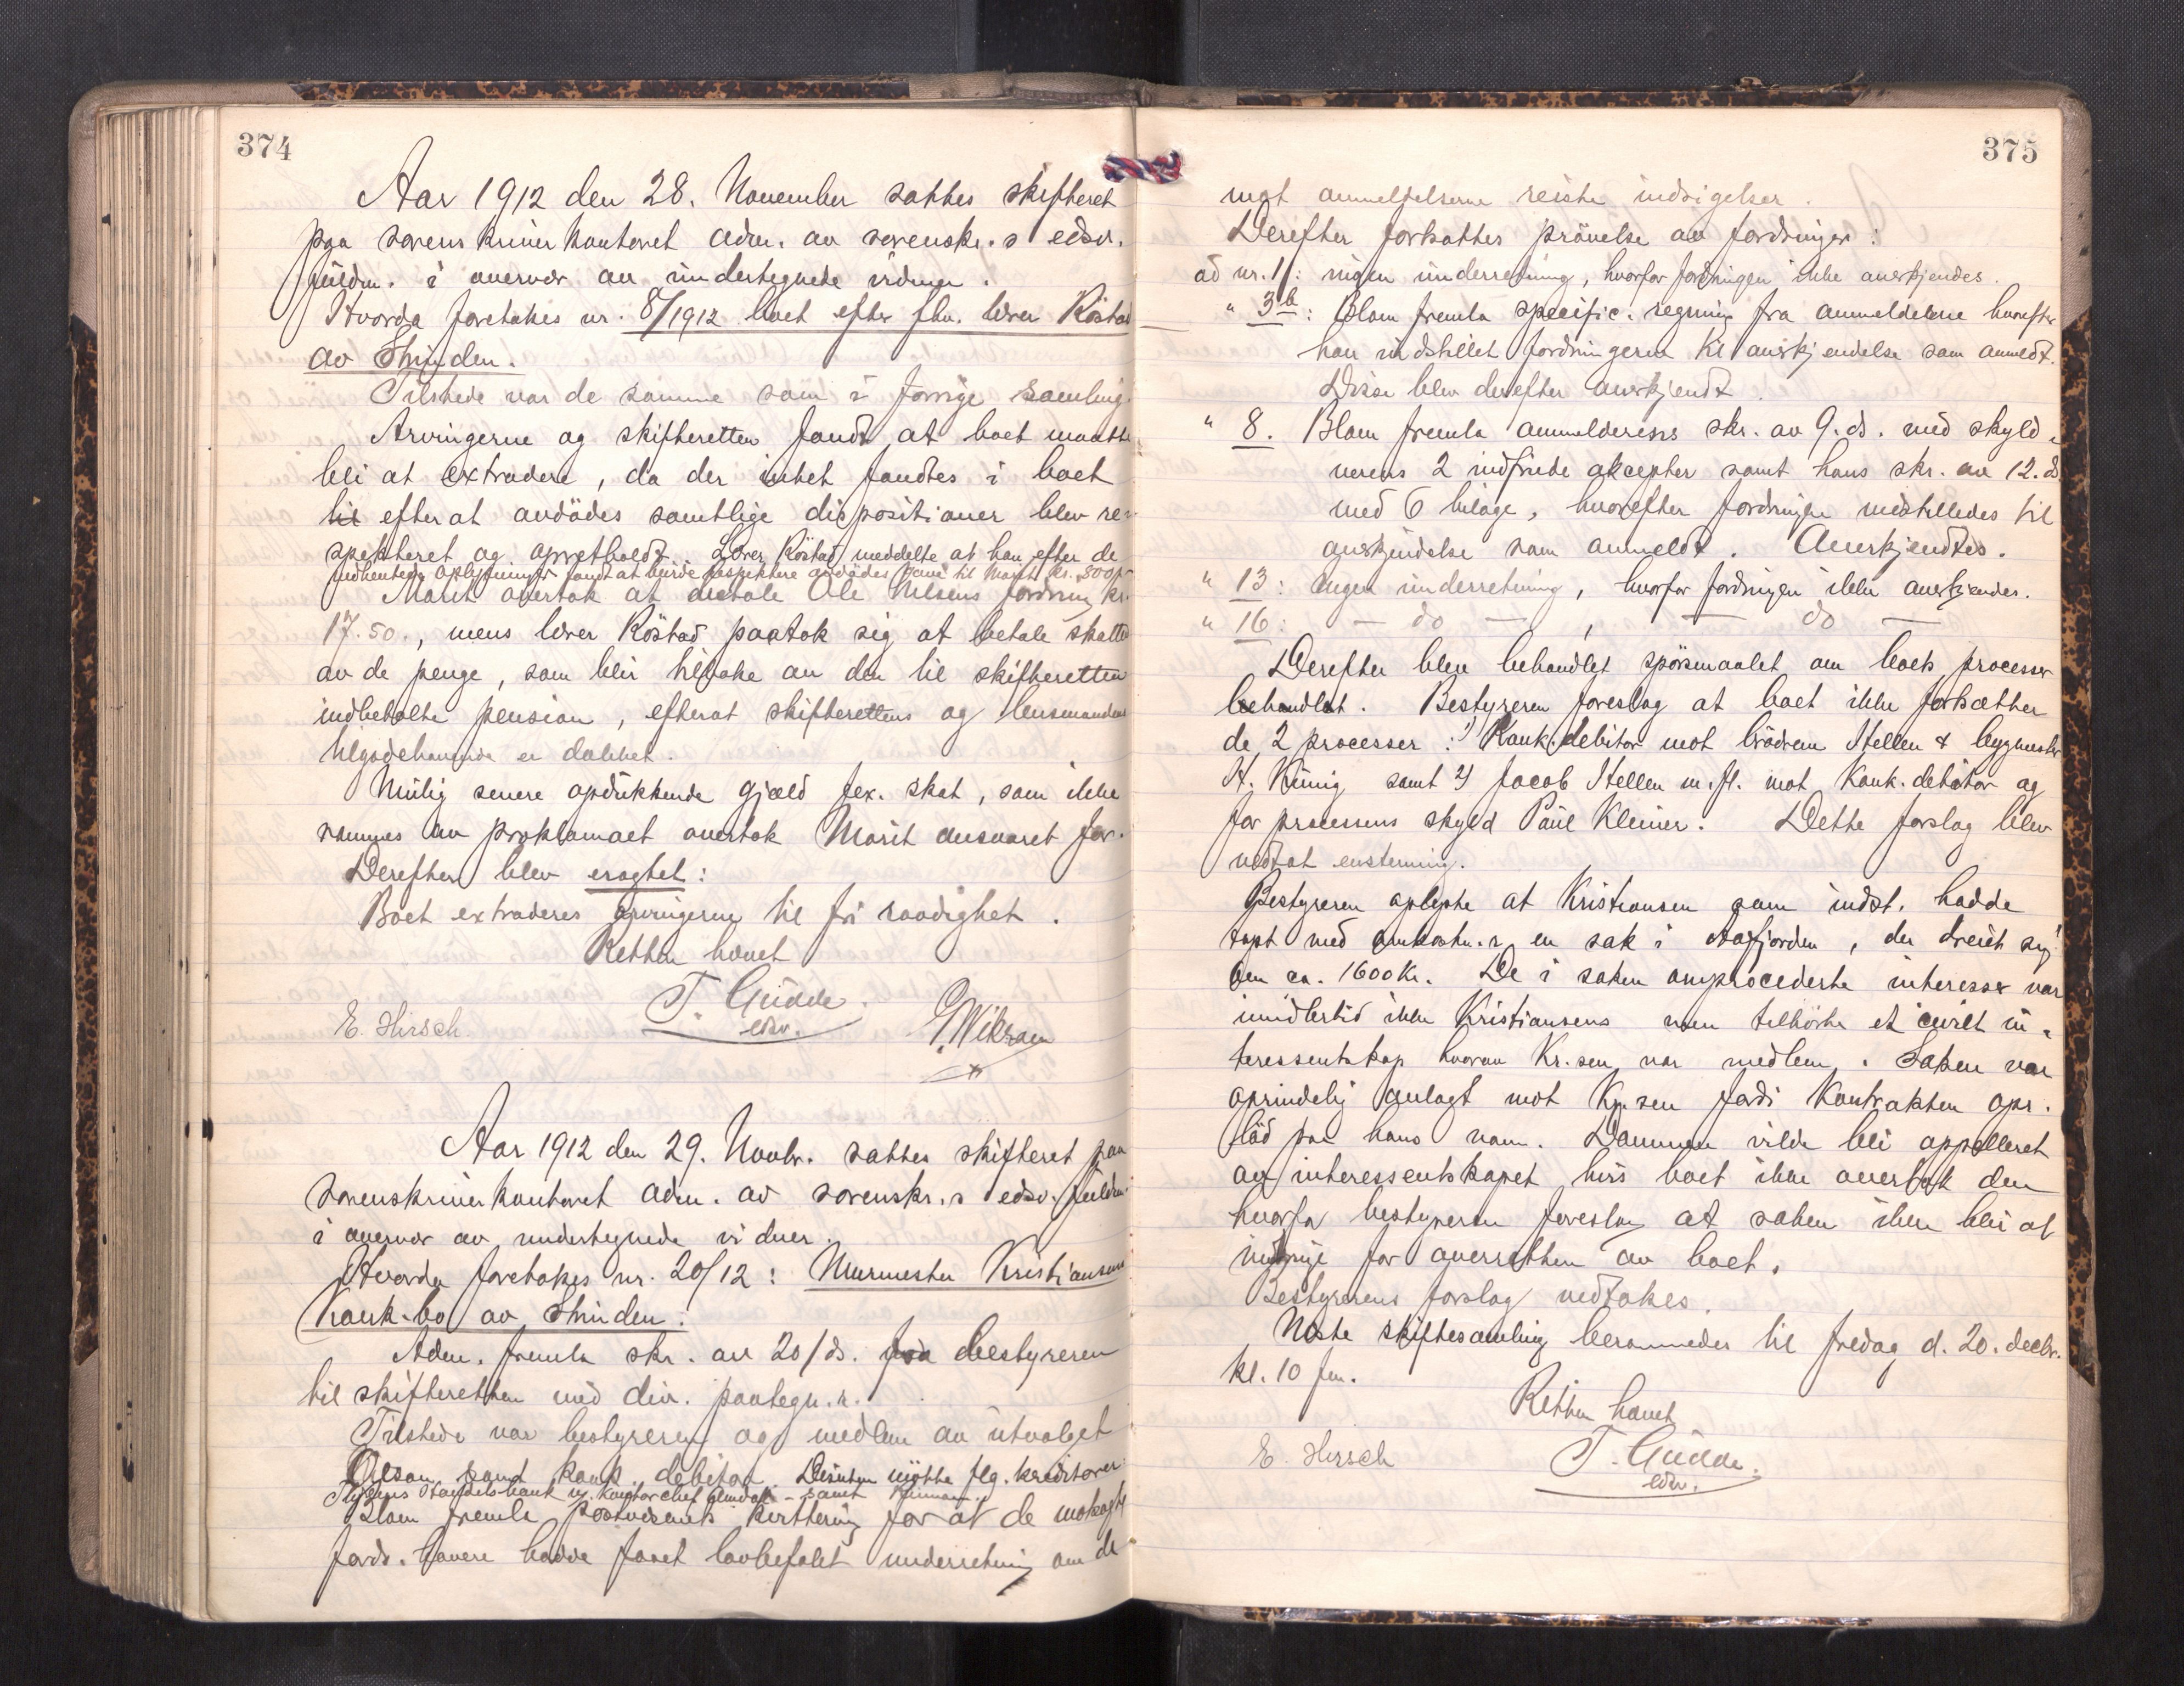 374
Aar 1912 den 28. November sattes skifteret
paa sorenskriverkontoret adm. av sorenskr.s edsv.
fuldm. i overvær av undertegnede vidner.
Hvorda foretokes nr. 8/1912 boet efter fhv. lærer Røstad
av Strinden.
Tilstede var de samme som i forrige samling.
Arvingerne og skifteretten fandt at boet maatte
bli at extradere, da der intet fandtes i boet
til efterat avdødes samtlige dispositioner blev re-
spekteret og opretholdt. Lærer Røstad meddelte at han efter de
indhentede oplysninger fandt at burde respektere avdødes gave til Marit kr. 800,-
Marit overtok at betale Ole Nilsens fordring kr.
17.50., mens lærer Røstad paatok sig at betale skatten
av de penge, som blir tilbake av den til skifteretten
indbetalte pension, efterat skifterettens og lensmandens
tilgodehavende er dækket.
Mulig senere opdukkende gjæld f.ex. skat, som ikke
rammes av proklamaet overtok Marit ansvaret for.
Derefter blev eragtet:
Boet extraderes arvingerne til fri raadighet.
Retten hævet
T. Gudde.
edsv.
E. Hirsch.
Aar 1912 den 29. Novbr. sattes skifteret paa
sorenskriverkontoret adm. av sorenskr.s edsv. fuldm.
i overvær av undertegnede vidner.
Hvorda foretokes nr. 20/12: Murmester Kristiansens
konk.bo av Strinden.
Adm. fremla skr. av 20/ds. fra bestyreren
til skifteretten med div. paategn.r.
Tilstede var bestyreren og medlem av utvalget
Olsen samt konk. debitor. Desuten møtte flg. kreditorer:
Handelsbank v. kontorchef samt
Blom fremla postvæsenets kvittering for at de
fords.havere hadde faaet lovbefalet underretning om de
375
mot anmeldelserne reiste indsigelser.
Derefter fortsattes prøvelse av fordringer:
ad nr. 1: ingen underretning, hvorfor fordringen ikke anerkjendes.
" 3b: Blom fremla specific. regning fra anmelderne hvorefter
han indstillet fordringerne til anerkjendelse som anmeldt.
Disse blev derefter anerkjendt.
" 8. Blom fremla anmelderens skr. av 9. ds. med skyld-
nerens 2 indfriede akcepter samt hans skr. av 12. ds.
med 6 bilage, hvorefter fordringen indstilledes til
anerkjendelse som anmeldt. Anerkjendtes.
" 13: ingen underretning, hvorfor fordringen ikke anerkjendes.
" 16: — do — , — do —
Derefter blev behandlet spørsmaalet om boets processer
behandlet. Bestyreren foreslog at boet ikke fortsætter
de 2 processer: 1) Konk.debitor mot brødrene Stellen & bygmester
H. samt 2) Jacob Stellen m.fl. mot konk.debitor og
for processens skyld Paul Kleiner. Dette forslag blev
vedtat enstemmig.
Bestyreren oplyste at Kristiansen som indst. hadde
tapt med omkostn.r en sak i Aafjorden, der dreiet sig
om ca. 1600 kr. De i saken omprocederte interesser var
imidlertid ikke Kristiansens men tilhørte et civilt in-
teressentskap hvorav Kr.sen var medlem. Saken var
oprindelig anlagt mot Kr.sen fordi kontrakten opr.
lød paa hans navn. Dommen vilde bli appelleret
av interessentskapet hvis boet ikke overtok den
hvorfor bestyreren foreslog at saken ikke blir at
for overretten av boet.
Bestyrerens forslag vedtokes.
Næste skiftesamling berammedes til fredag d. 20. decbr.
kl. 10 fm.
Retten hævet
T. Gudde.
edsv.
E. Hirsch